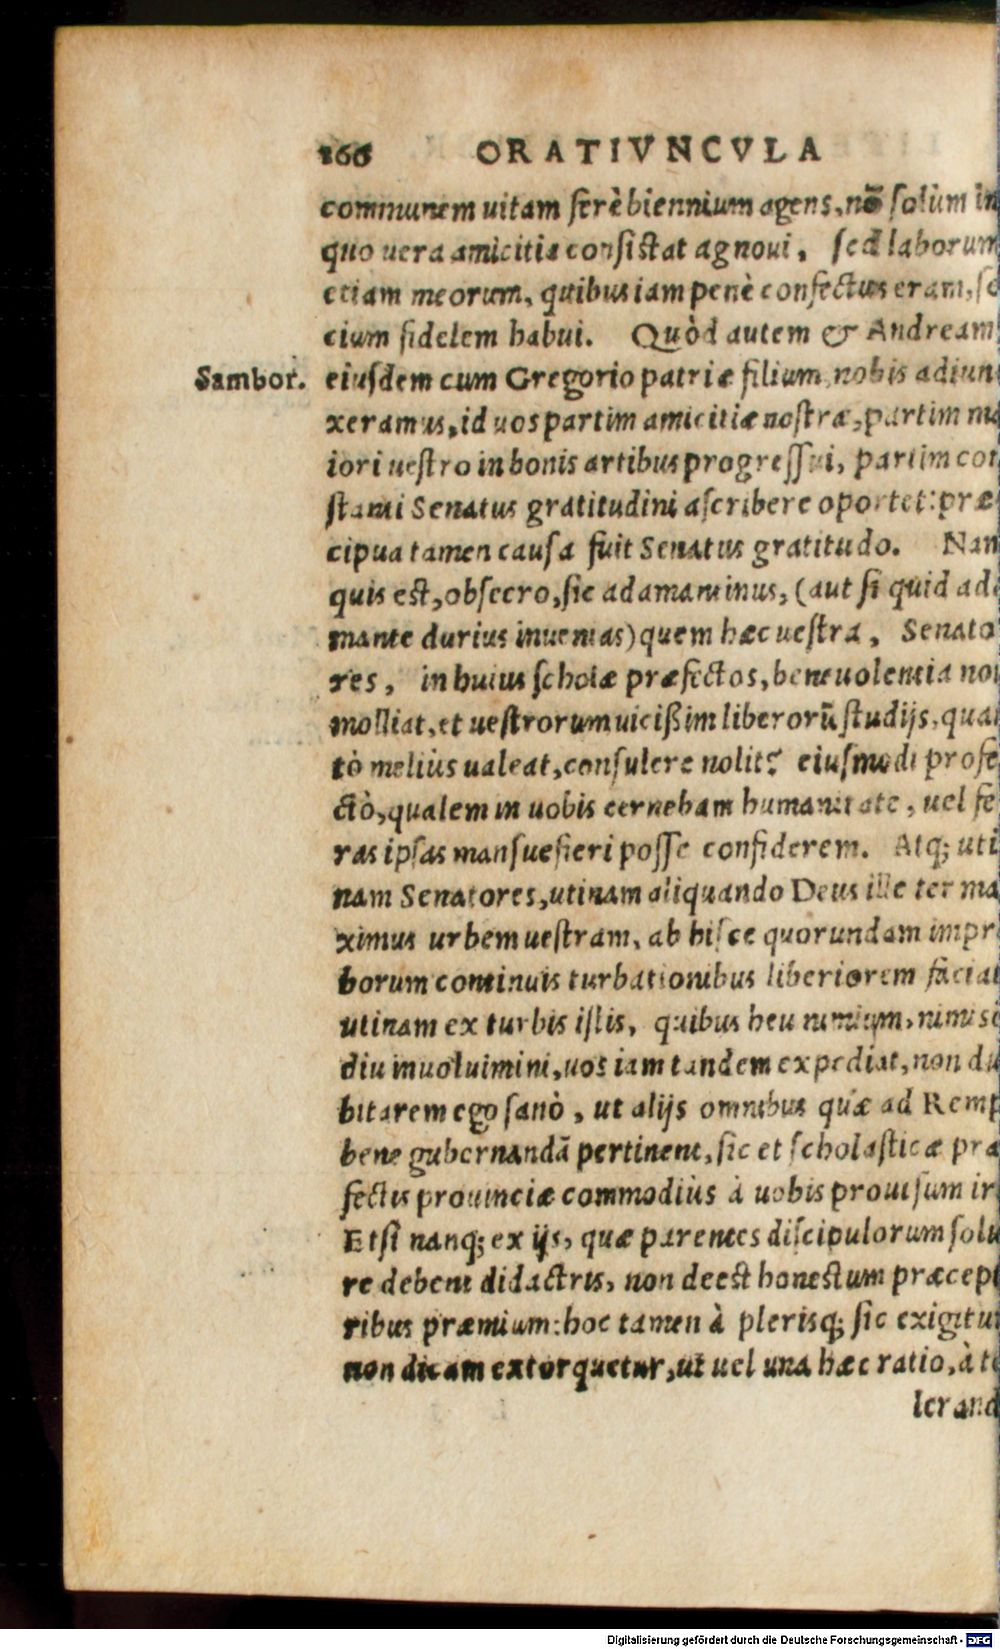 166 ORATIVNCVLA
communem uitam ferè biennium agens, nō solùm in
quo uera amicitia consistat agnoui, sed laborum
etiam meorum, quibus iam penè confectus eram, so
cium fidelem habui. Quòd autem & Andream
Sambor. eiusdem cum Gregorio patriæ filium nobis adiun
xeramus, id uos partim amicitiæ nostræ, partim ma
iori uestro in bonis artibus progressui, partim con
stanti Senatus gratitudini ascribere oportet: præ
cipua tamen causa fuit Senatus gratitudo. Nam
quis est, obsecro, sic adamantinus, (aut si quid ada
mante durius inuenias) quem hæc uestra, Senato
res, in huius scholæ præfectos, beneuolentia non
molliat, et uestrorum uicißim liberorū studijs, quan
tò meliùs ualeat, consulere nolit? eiusmodi profe
ctò, qualem in uobis cernebam humanitate, uel fe
ras ipsas mansuefieri posse confiderem. Atq; uti
nam Senatores, utinam aliquando Deus ille ter ma
ximus urbem uestram, ab hisce quorundam impro
borum continuis turbationibus liberiorem faciat
utinam ex turbis istis, quibus heu nimium, nimisq́
diu inuoluimini, uos iam tandem expediat, non du
bitarem ego sanò, ut alijs omnibus quæ ad Remp
bene gubernandā pertinent, sic et scholasticæ præ
fectis prouinciæ commodiùs à uobis prouisum iri
Etsi nanq; ex ijs, quæ parentes discipulorum solue
re debent didactris, non deest honestum præcepto
ribus præmium: hoc tamen à plerisq; sic exigitur
non dicam extorquetur, ut uel una hæc ratio, à to
lerand
Digitalisierung gefördert durch die Deutsche Forschungsgemeinschaft - DFG